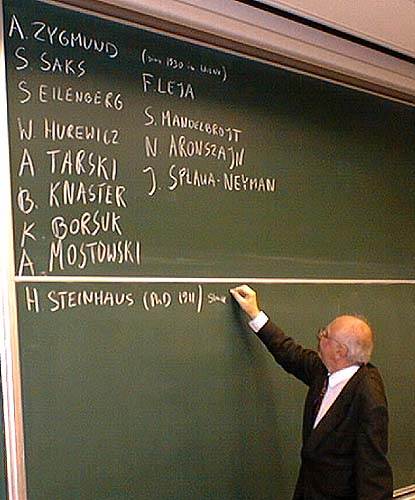 A. ZYGMUND
S. SAKS
S EILENBERG
W. HUREWICZ
A TARSKI
B. KNASTER
K. BORSUK
A. MOSTOWSKI
(since 1930 in Wilno)
F. LEJA
S. MANDELBROJT
N ARONSZAJN
J. SPŁAWA-NEYMAN
H STEINHAUS (PhD 1911)